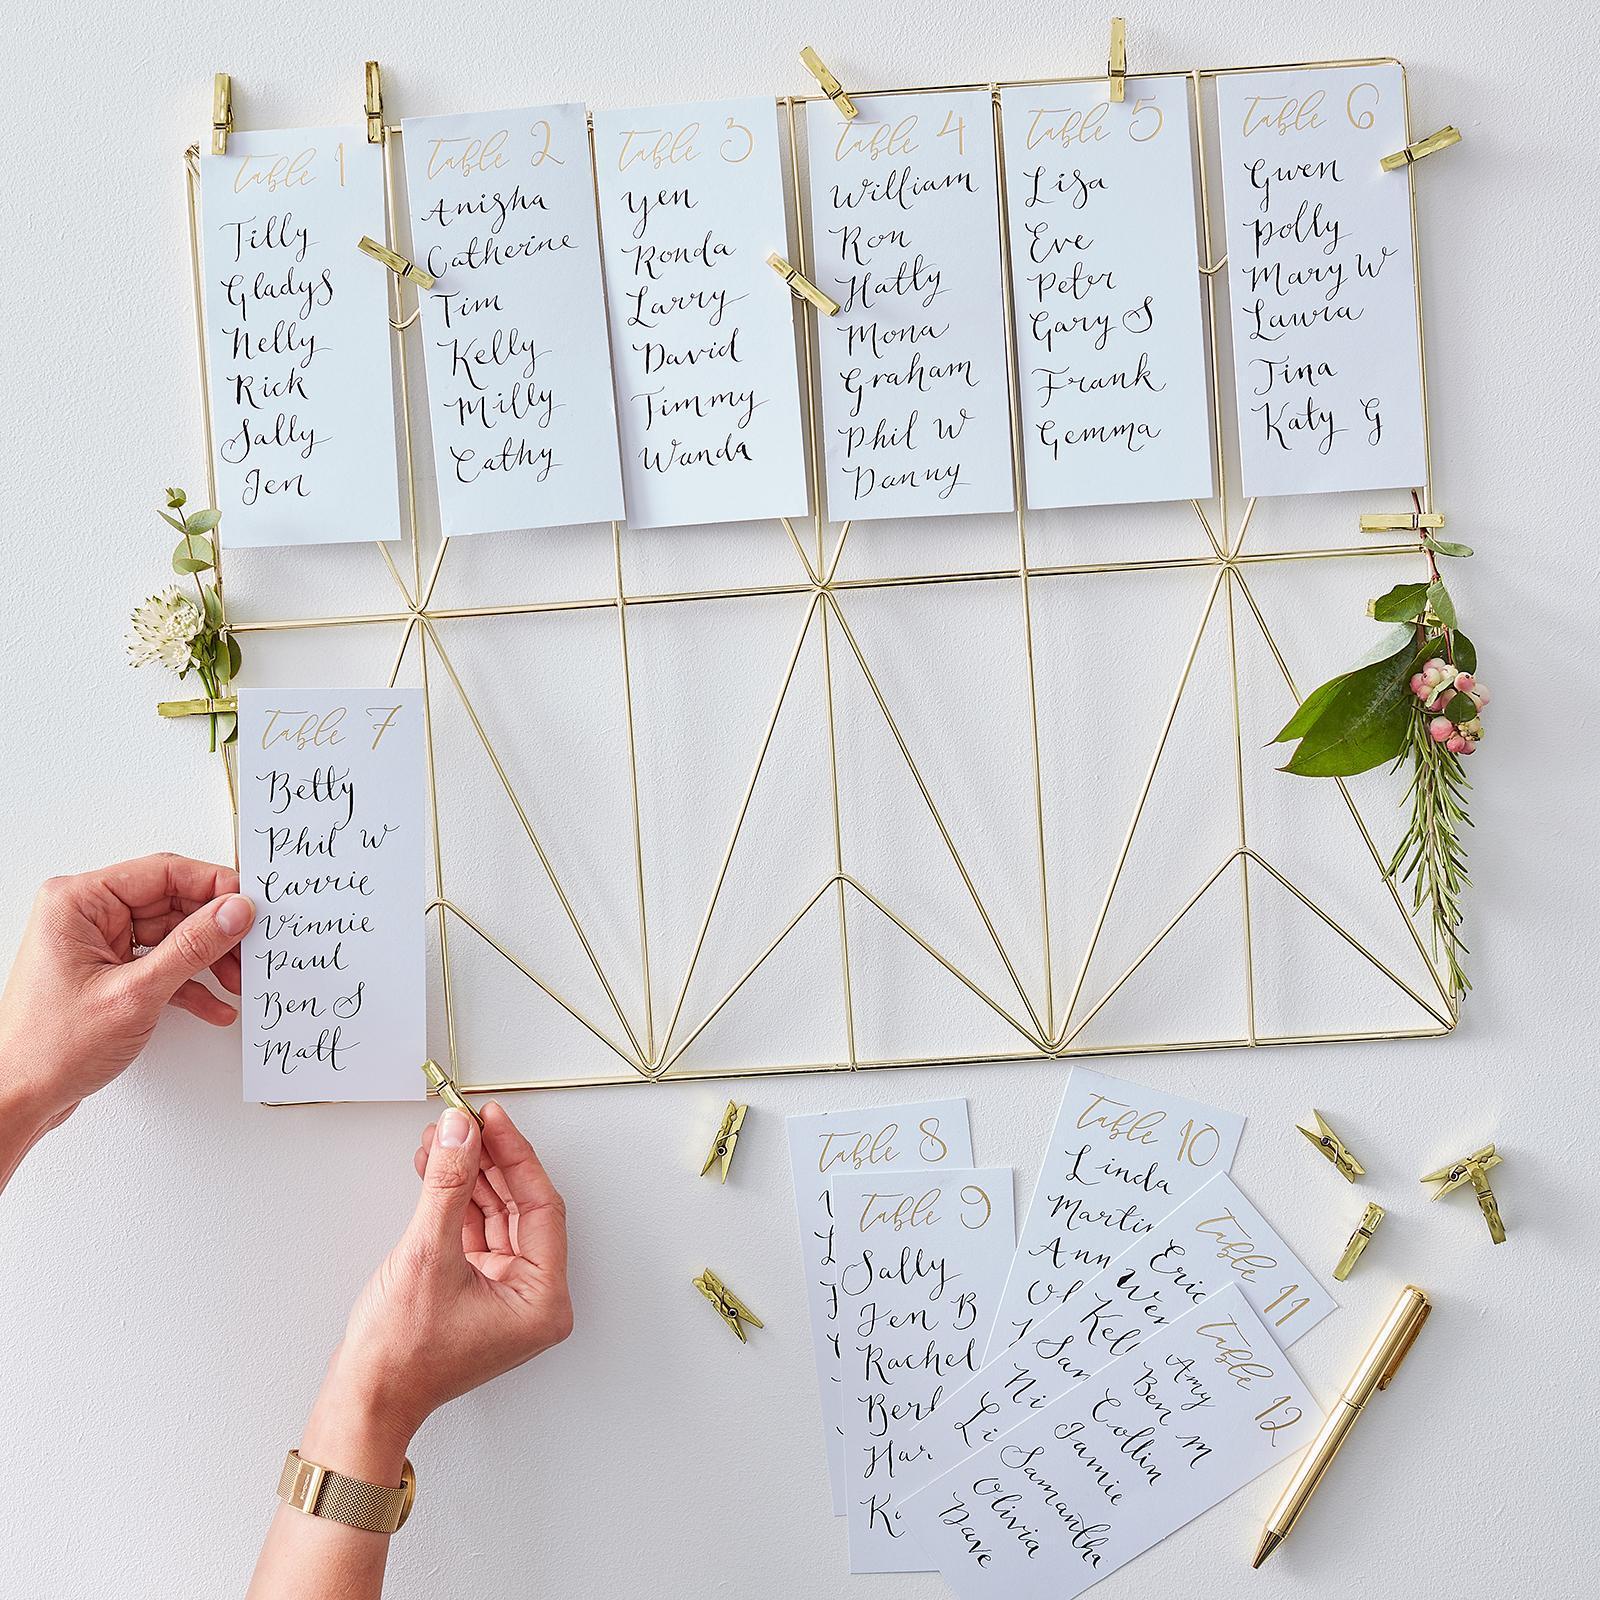 Table 1
Tilly
Gladys
Nelly
Rick
Sally
Jen
Table 2
Anisha
Catherine
Tim
Kelly
Milly
Cathy
Table 3
Yen
Ronda
Larry
David
Timmy
Wanda
Table 4
William
Ron
Hatty
Mona
Graham
Phil W
Danny
Table 5
Lisa
Eve
Peter
Gary S
Frank
Gemma
Table 6
Gwen
Polly
Mary W
Laura
Tina
Katy G
Table 7
Betty
Phil W
Carrie
Vinnie
Paul
Ben S
Matt
Table 8
Table 9
Sally
Jen B
Rachel
Table 10
Linda
Martin
Ann
Table 11
Eric
Wen
Kel
San
Ni
Li
Table 12
Amy
Ben M
Collin
Jamie
Samantha
Olivia
Dave